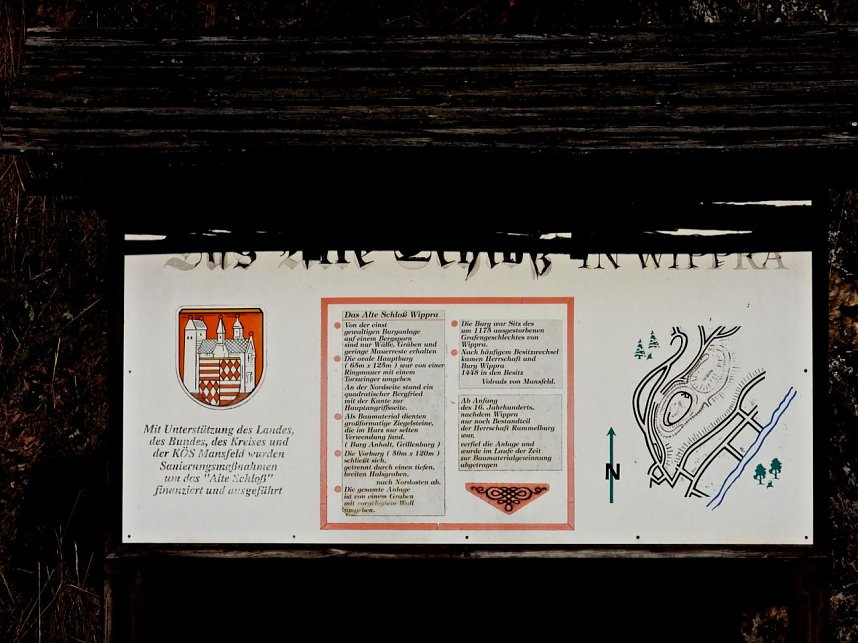 Das Alte Schloß IN WIPPRA
Mit Unterstützung des Landes,
des Bundes, des Kreises und
der KÖS Mansfeld wurden
Sanierungsmaßnahmen
um das "Alte Schloß"
finanziert und ausgeführt
Das Alte Schloß Wippra
Von der einst
gewaltigen Burganlage
auf einem Bergsporn
sind nur Wälle, Gräben und
geringe Mauerreste erhalten
Die ovale Hauptburg
( 65m x 125m ) war von einer
Ringmauer mit einem
Torzwinger umgeben
An der Nordseite stand ein
quadratischer Bergfried
mit der Kante zur
Hauptangriffsseite.
Als Baumaterial dienten
großformatige Ziegelsteine,
die im Harz nur selten
Verwendung fand.
( Burg Anhalt, Grillenburg )
Die Vorburg ( 80m x 120m )
schließt sich,
getrennt durch einen tiefen,
breiten Halsgraben,
nach Nordosten ab.
Die gesamte Anlage
ist von einem Graben
mit vorgelegtem Wall
umgeben.
Die Burg war Sitz des
um 1175 ausgestorbenen
Grafengeschlechtes von
Wippra.
Nach häufigem Besitzwechsel
kamen Herrschaft und
Burg Wippra
1448 in den Besitz
Volrads von Mansfeld.
Ab Anfang
des 16. Jahrhunderts,
nachdem Wippra
nur noch Bestandteil
der Herrschaft Rammelburg
war,
verfiel die Anlage und
wurde im Laufe der Zeit
zur Baumaterialgewinnung
abgetragen
N